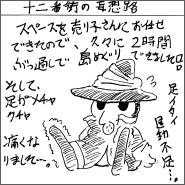 十二番街の妄想路
スペースを売り子さんにお任せ
できたので、久々に2時間
ぶっ通しで島めぐりできました。
そして、
足がメチャ
クチャ
痛くな
りましたー。
足イタイ
運動不足…。